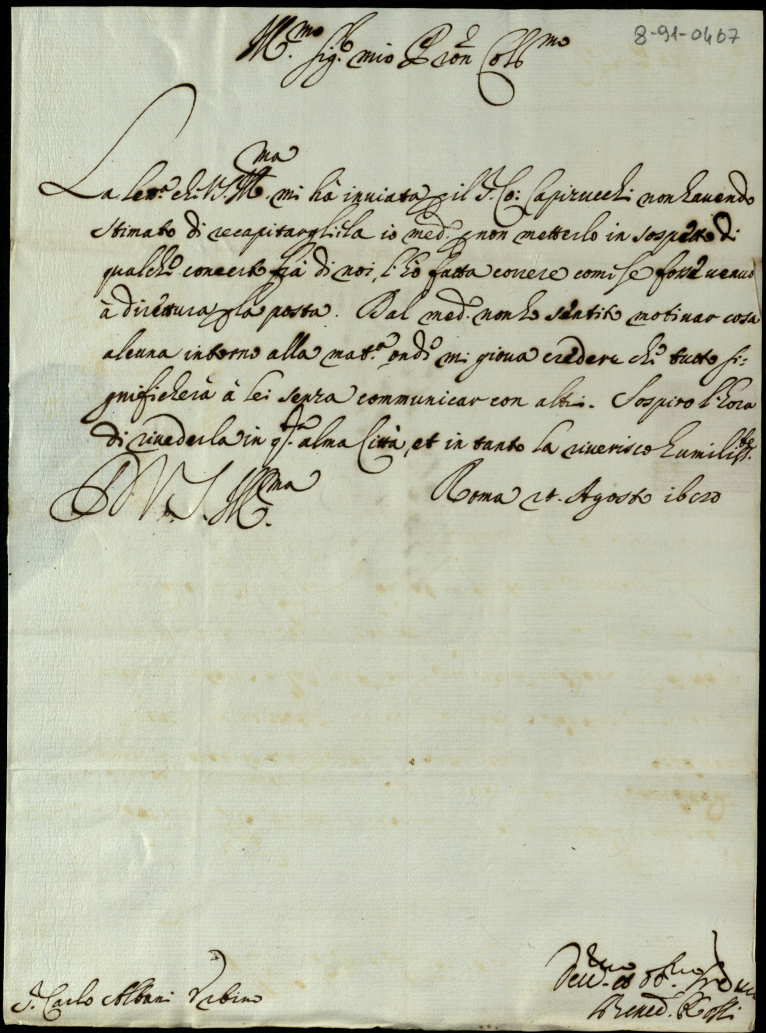 8-91-0467
Ill.mo Sig.r mio P.ron Col.mo
La lett.a che V.S. Ill.ma mi hà inviata p il S. Co: Capizucchi non havendo
stimato di recapitargliela io med.o p non metterlo in sospetto di
qualche concerto frà di noi, l'hò fatta correre come se fosse venuta
à direttura p la posta. Dal med.o non hò sentito motivar cosa
alcuna intorno alla mat.a, onde mi giova credere che tutto si-
gnificherà à lei senza communicar con altri. Sospiro l'hora
di rivederla in q.sta alma Città, et in tanto la riverisco humiliss.te
D V. S. Ill.ma Roma Agosto
S. Carlo Albani Urbino
Dev.mo et Obb.mo Ser.
Bened.